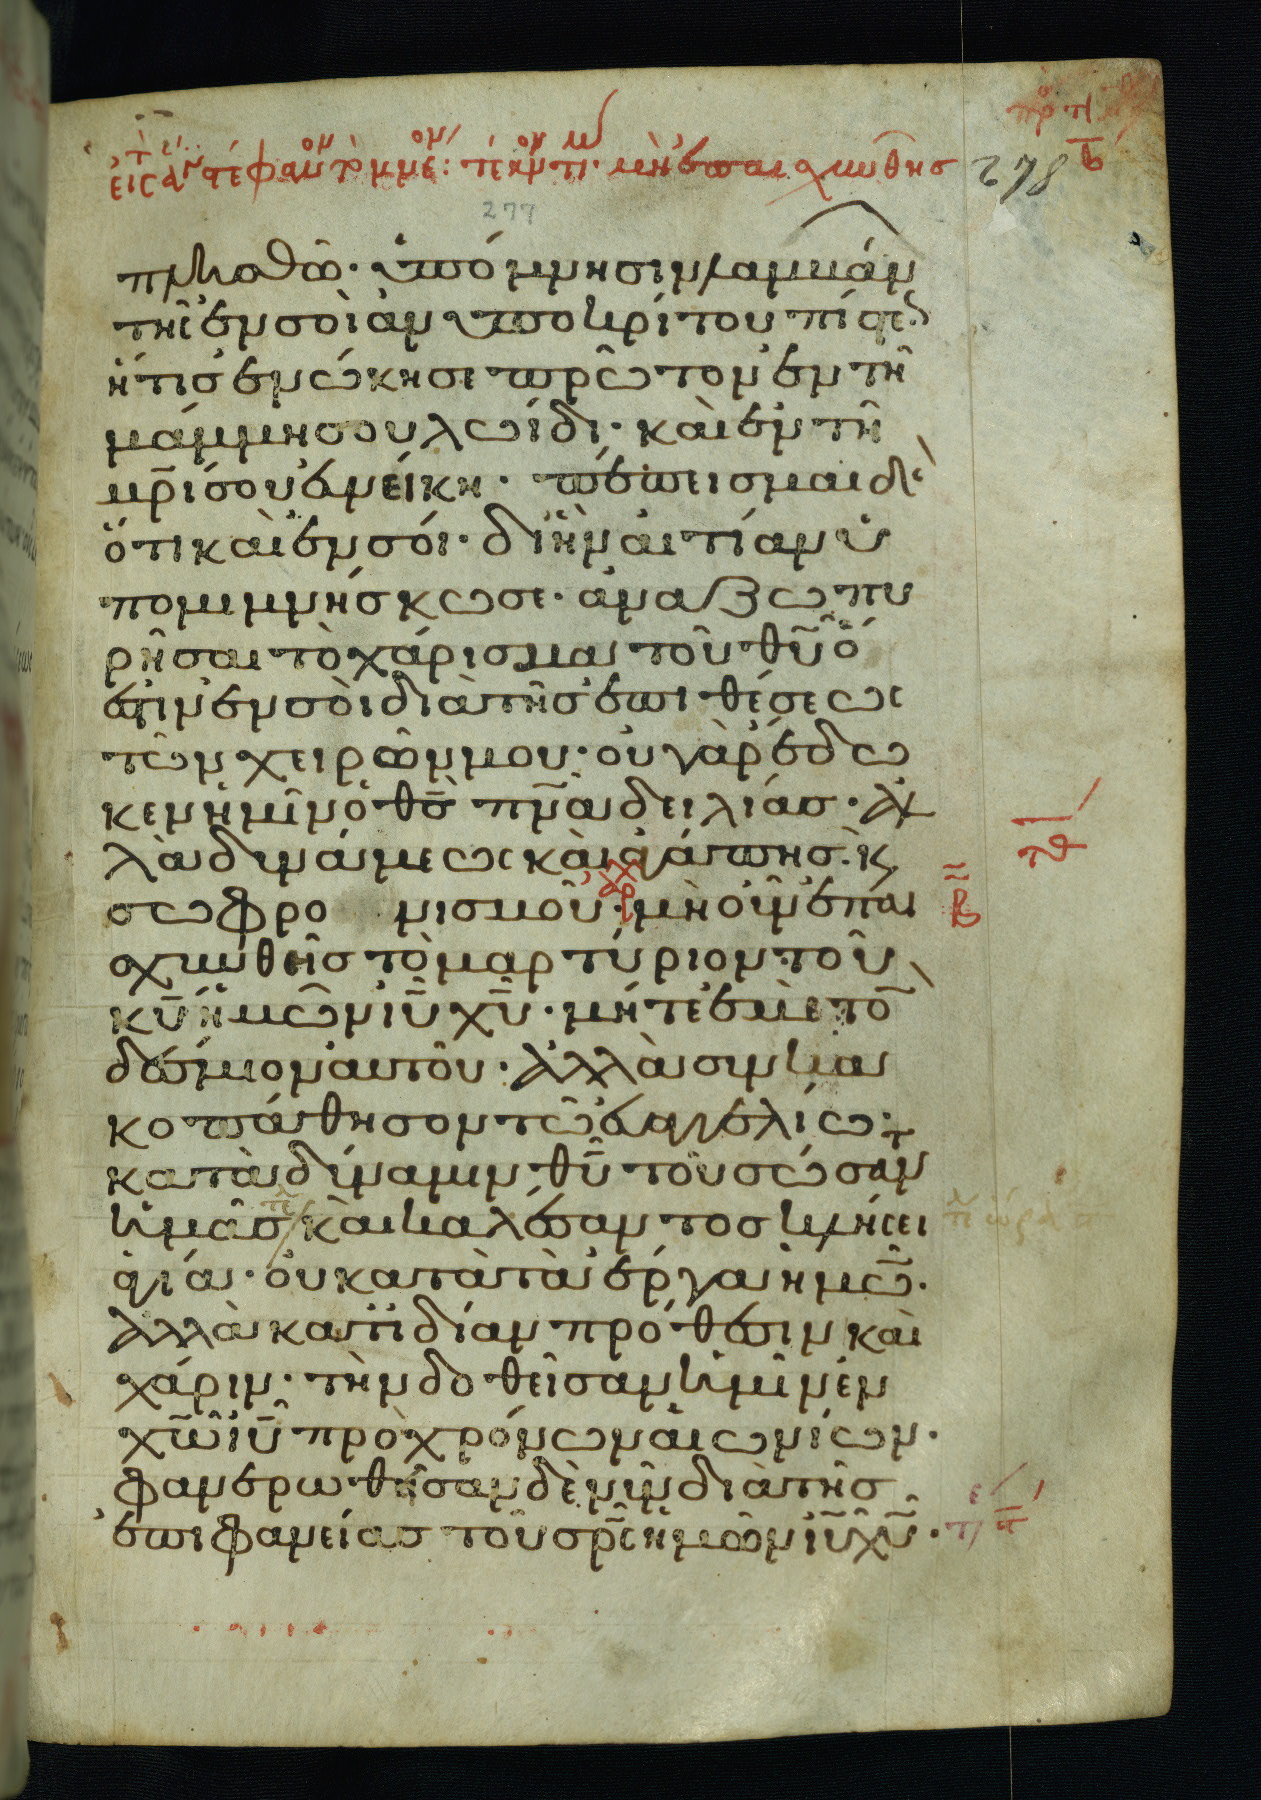 277
278
πληρωθῶ· ὑπόμνησιν λαμβάν
τῆς ἐν σοὶ ἀνυποκρίτου πίστε
ἥτις ἐνώκησε πρῶτον ἐν τῆ
μάμμη σου λωίδι· καὶ ἐν τῆ
μρ̅ί σου ἐυνείκη· πέπεισμαι δὲ
ὅτι καὶ ἐν σόι· δι ἣν αἰτίαν ὑ
πομιμνήσκω σε· ἀναζωπυ
ρῆσαι τὸ χάρισμα τοῦ θυ̅ ὅ
ἐστιν ἐν σοὶ διὰ τῆς ἐπιθέσεως
τῶν χειρῶν μου· οὐ γὰρ ἔδω
κεν ἡμῖν ὁ θς̅ πνα̅ δειλίας· ἀλ
λὰ δυνάμεως καὶ ἀγάπης· κ
σωφρο νισμοῦ· μὴ οὖν ἐπαι
σχυνθῆς τὸ μαρτύριον τοῦ
κυ̅ ἡμῶν ιυ̅ χυ̅· μήτε ἐμὲ το
δέσμιον αὐτοῦ· ἀλλὰ συγκα
κοπάθησον τῶ εὐαγγελίω·
κατὰ δύναμιν θυ̅ τοῦ σώσαντ
ἡμᾶς καὶ καλέσαντος κλήσει
ἁγία· οὐ κατὰ τὰ ἔργα ἡμῶ·
ἀλλὰ κατ ἰδίαν πρόθεσιν καὶ
χάριν· τὴν δοθεῖσαν ἡμῖν ἐν
χω̅ ιυ̅ πρὸ χρόνων αἰωνίων·
φανερωθεῖσαν δὲ νῦν διὰ τῆς
ἐπιφανείας τοῦ σρ̅ς ἡμῶν ιυ̅ χυ̅·